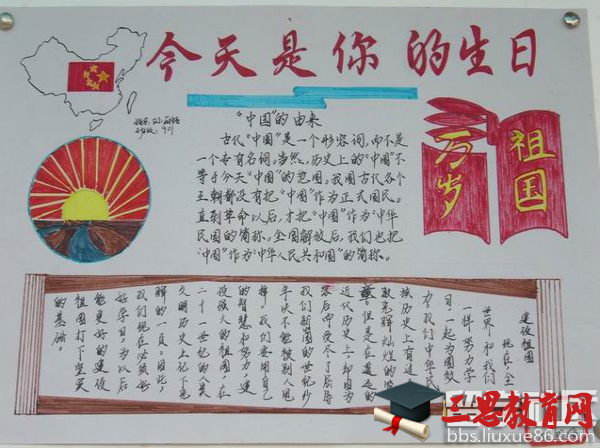 今天是你的生日
"中国"的由来
古代"中国"是一个形容词,而不是
一个专有名词。当然,历史上的"中国"不
等于今天"中国"的范围。我国古代各个
王朝都没有把"中国"作为正式国民。
直到革命以后,才把"中国"作为"中华
民国的简称。全国解放后,我们也把
"中国"作为"中华人民共和国"的简称。
祖国
万岁
建设祖国
现在,全
世界和我们
一样努力学
日,一起为国效
力,我们中华民
族历史上有过
辉煌的
但是在遥远的
近代历史上,却因为
落后中受尽了屈辱
我们新国的世纪少
年决不能被别人阻
挡,我们要用自己
的智慧和努力,建
设强大的祖国,在
二十一世纪的人类
文明历史上记下光
辉的一页。因此,
我们现在必须好
好学习,为以后
能更好的建设
祖国打下坚实
的基础。
三思教育网
bbs.liuxue86.com